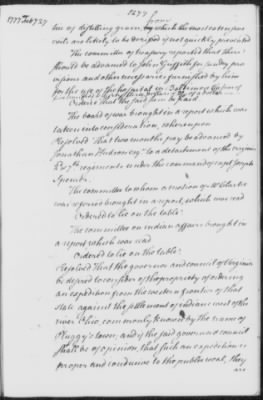 1777 Feb 7 27
from
tice of distilling grain, by which the most extensive
evils are likely to be derived if not quickly prevented
The committee of treasury reported that there
should be advanced to John Griffith for sundry pro
visions and other necessaries furnished by him
for the use of the hospital in Baltimore
Ordered That the said sum be paid.
The board of war brought in a report which was
taken into consideration, whereupon
Resolved That two months pay be advanced by
Jonathan Hudson esqr to a detachment of the virginia
regiments under the command of capt Joseph
The committee to whom a motion of
was referred brought in a report, which was read
Ordered to lie on the table.
The committee on indian affairs brought in
a report which was read
Ordered to lie on the table.
Resolved That the governor and council of Virginia
be desired to consider of the propriety of ordering
an expedition from the western frontier of that
state against the settlement of indians west of the
river Ohio, commonly known by the name of
Pluggy's town; and if the said governor & council
shall be of opinion, that such an expedition is
proper and conducive to the public weal, they
are